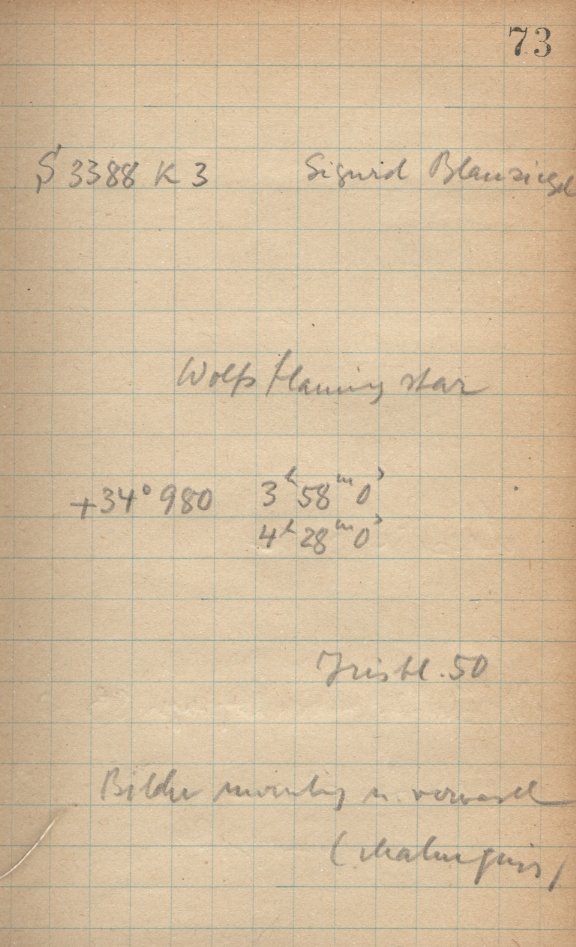 73
§ 3388 K 3 Sigurd Blauziegel
Wolfs flaming star
+34° 980 3h 58m 0s
4h 28m 0s
Irisbl. 50
Bilder